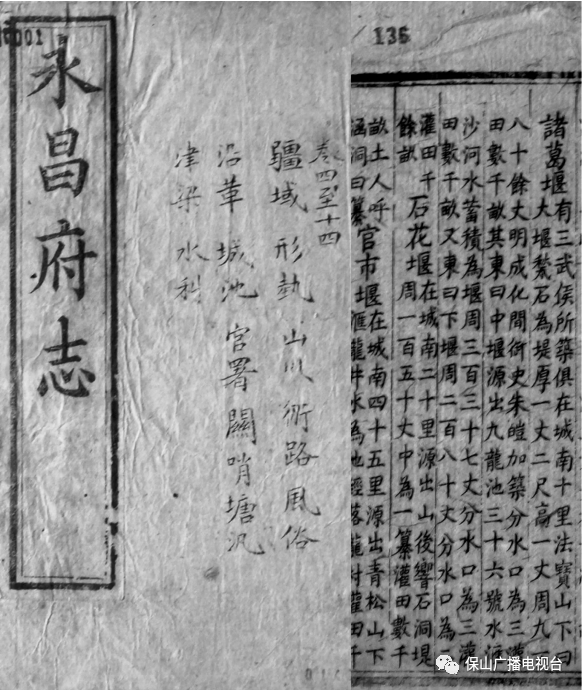 0001
永昌府志
卷四至十四
疆域 形勢 山川 路 風俗
沿革 城池 官署 關哨塘汛
津梁 水利
136
諸葛堰有三武侯所築俱在城南十里法寶山下曰
大堰甃石為堤厚一丈二尺高一丈周九百
八十餘丈明成化間御史朱皚加築分水口為三灌
田數千畝其東曰中堰源出九龍池三十六號水滙
沙河水蓄積為堰周三百三十七丈分水口為三灌
田數千畝又東曰下堰周二百八十丈分水口為
灌田千
餘畝
石花堰在城南二十里源出山後響石洞堤
周一百五十丈中為一纂灌田數千
畝土人呼
涵洞曰纂
官市堰在城南四十五里源出青松山下
滙龍井水為池經落龍村灌田千
保山广播电视台